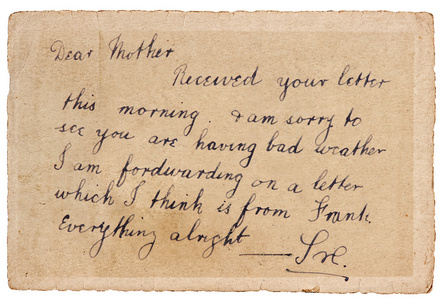 Dear Mother
Received your letter
this morning. & am sorry to
see you are having bad weather
I am fordwarding on a letter
which I think is from Frank.
Everything alright —